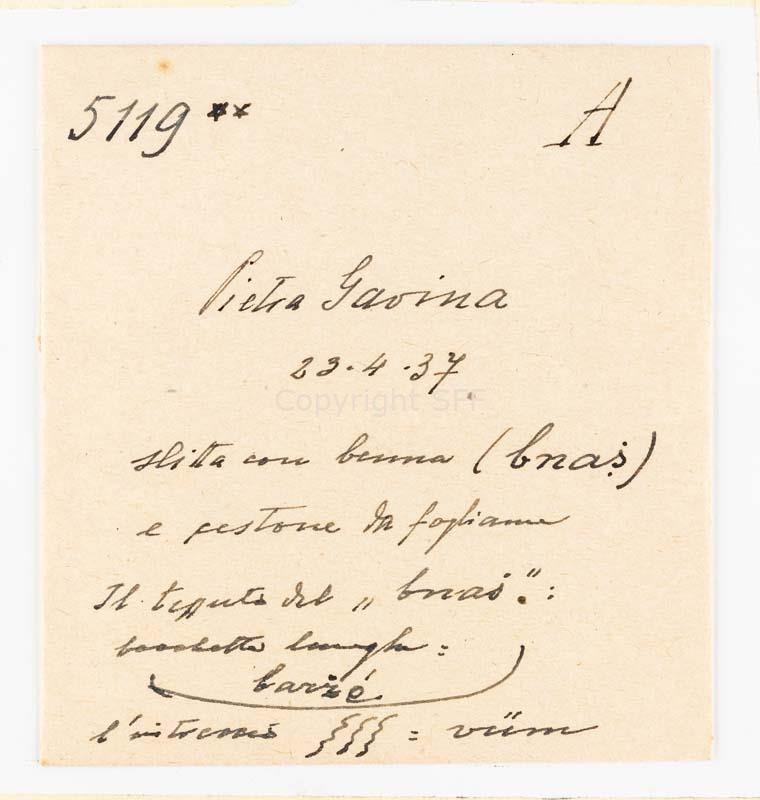 5119 ** A
Pietra Gavina
23.4.37
Copyright SFF
slitta con benna (bnaṩ)
e cestone da fogliame
Il tessuto del „bnaṩ":
bacchette lunghe =
barżé
l'intreccio {{{ = vüm